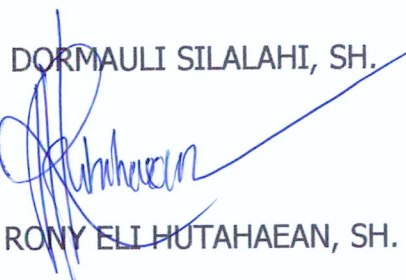 DORMAULI SILALAHI, SH.
Hutahaean
RONY ELI HUTAHAEAN, SH.